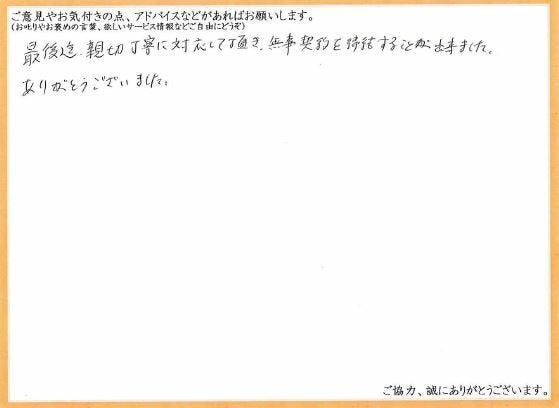 ご意見やお気付きの点、アドバイスなどがあればお願いします。
(お叱りやお褒めの言葉、欲しいサービス情報などご自由にどうぞ)
最後迄、親切丁寧に対応して頂き、無事契約を締結することが出来ました。
ありがとうございました。
ご協力、誠にありがとうございます。